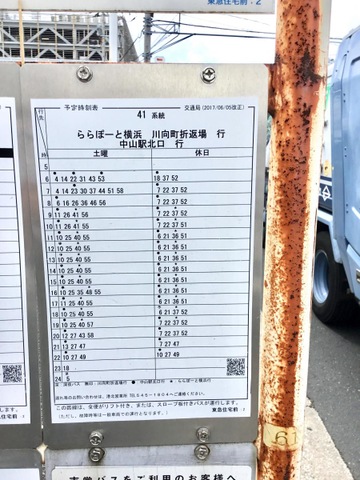 東急住宅前：2
予定時刻表
交通局（2017/06/05改正）
41 系統
行先
ららぽーと横浜 川向町折返場 行
中山駅北口 行
土曜 休日
5
6 4 14 22 31 43 53 18 37 52
7 4 14 23 30 37 44 51 58 7 22 37 52
8 6 16 26 36 46 56 7 22 37 52
9 11 26 41 56 7 22 37 52
10 11 26 41 55 7 22 37 51
11 10 25 40 55 6 21 36 51
12 10 25 40 55 6 21 36 51
13 10 25 40 55 6 21 36 51
14 10 25 40 55 6 21 36 51
15 10 25 40 55 6 21 36 51
16 10 25 35 48 55 6 21 36 51
17 11 25 40 55 6 21 36 51
18 10 25 40 55 6 21 36 51
19 10 25 40 57 6 21 38 52
20 12 27 43 58 7 22 37 52
21 13 27 47 7 22 37 52
22 10 27 49 10 27 49
23 18
24 5
東急住宅前
市営バスをご利用のお客様へ
61